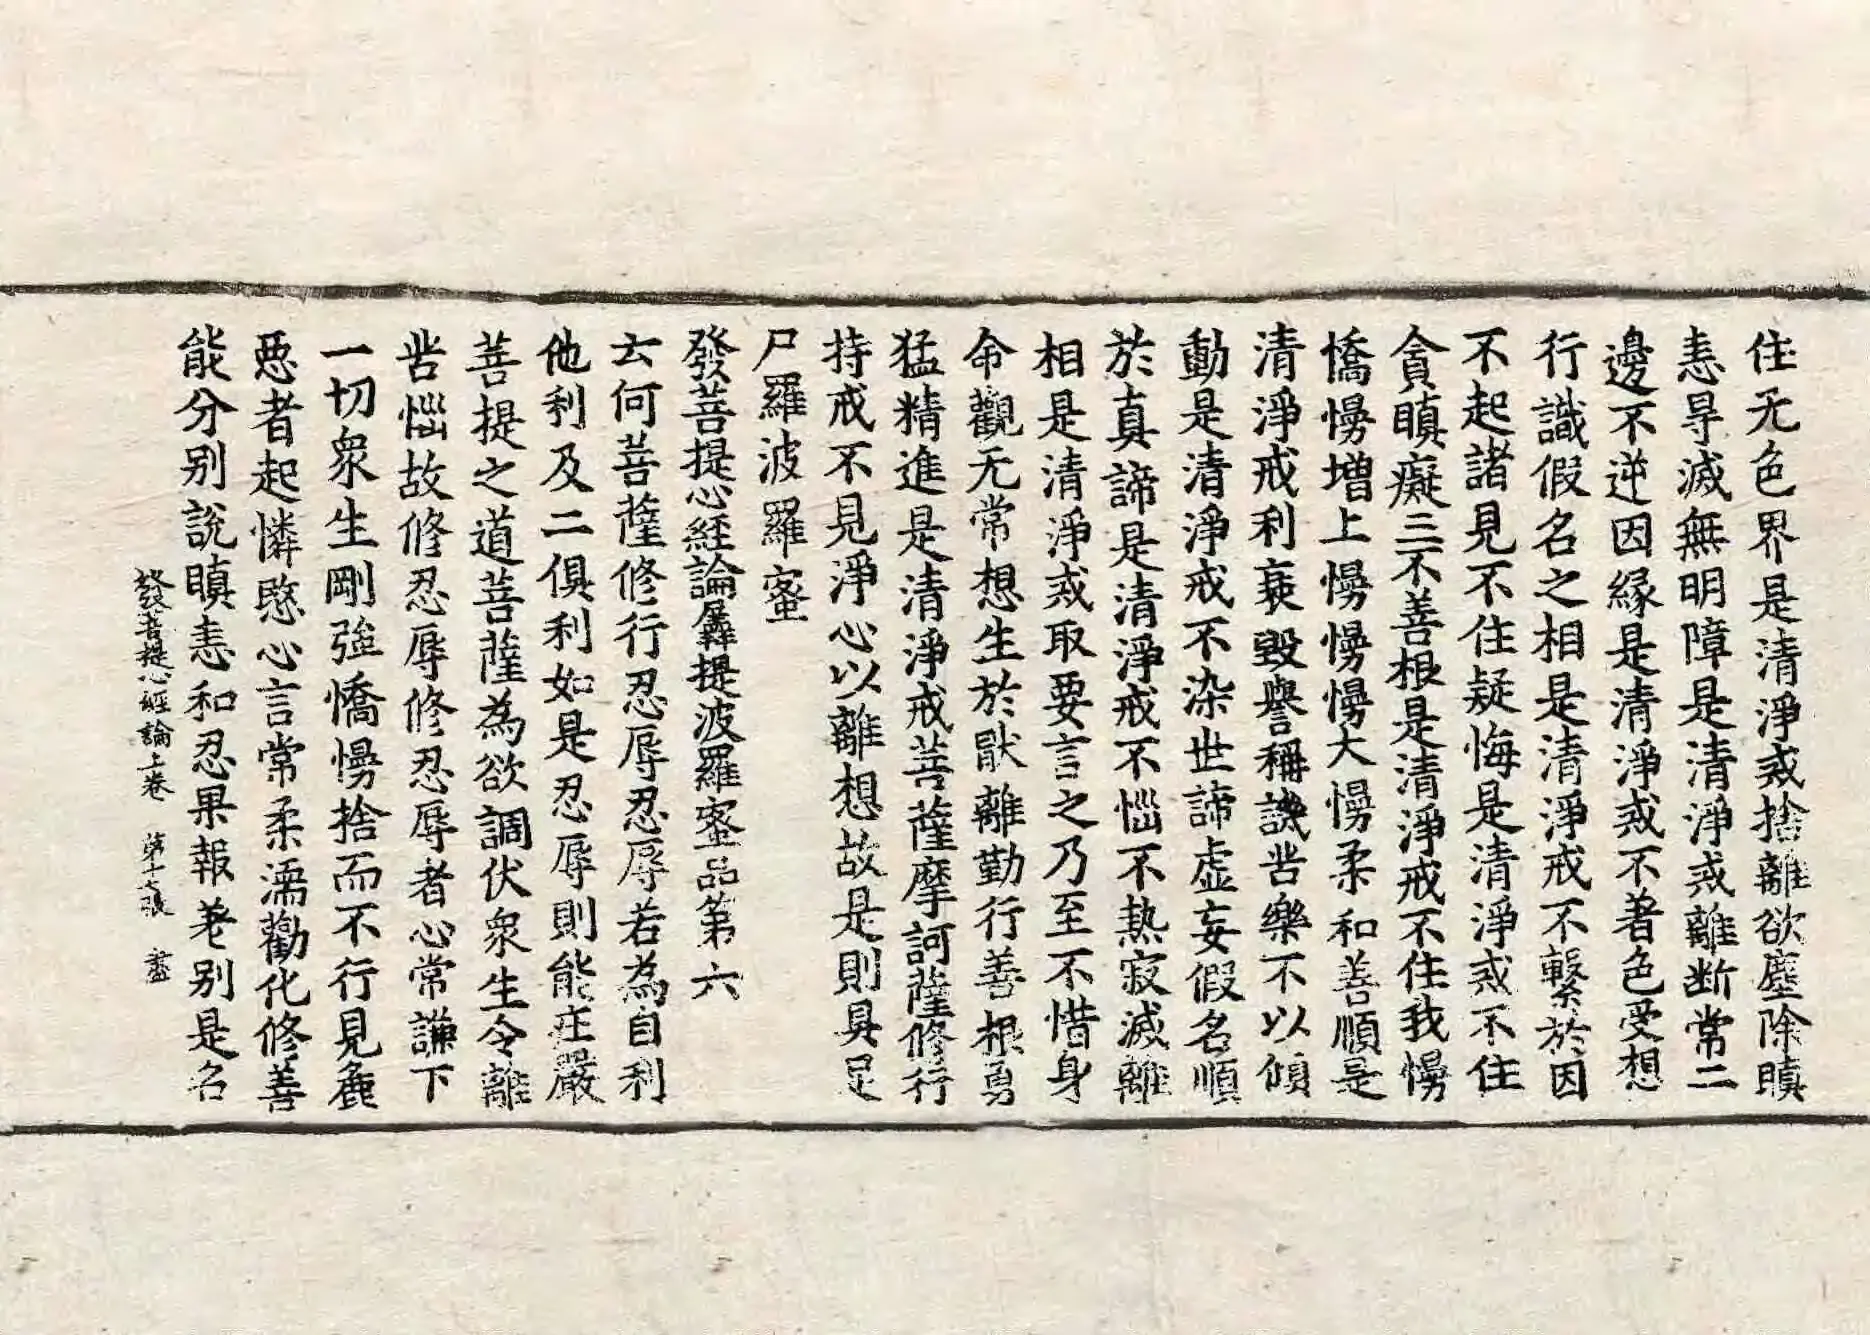 住无色界是清淨戒捨離欲塵除瞋
恚㝵滅無明障是清淨戒離断常二
邊不逆因縁是清淨戒不著色受想
行識假名之相是清淨戒不繫於因
不起諸見不住疑悔是清淨戒不住
貪瞋癡三不善根是清淨戒不住我慢
憍慢增上慢慢慢大慢柔和善順是
清淨戒利衰毀譽稱譏苦樂不以傾
動是清淨戒不染世諦虛妄假名順
於真諦是清淨戒不惱不熱寂滅離
相是清淨戒取要言之乃至不惜身
命觀无常想生於猒離勤行善根勇
猛精進是清淨戒菩薩摩訶薩修行
持戒不見淨心以離想故是則具足
尸羅波羅蜜
發菩提心經論羼提波羅蜜品第六
云何菩薩修行忍辱忍辱若為自利
他利及二俱利如是忍辱則能庄嚴
菩提之道菩薩為欲調伏衆生令離
苦惱故修忍辱修忍辱者心常謙下
一切衆生剛強憍慢捨而不行見麁
惡者起憐愍心言常柔濡勸化修善
能分别說瞋恚和忍果報差别是名
發菩提心經論上卷　第十七張